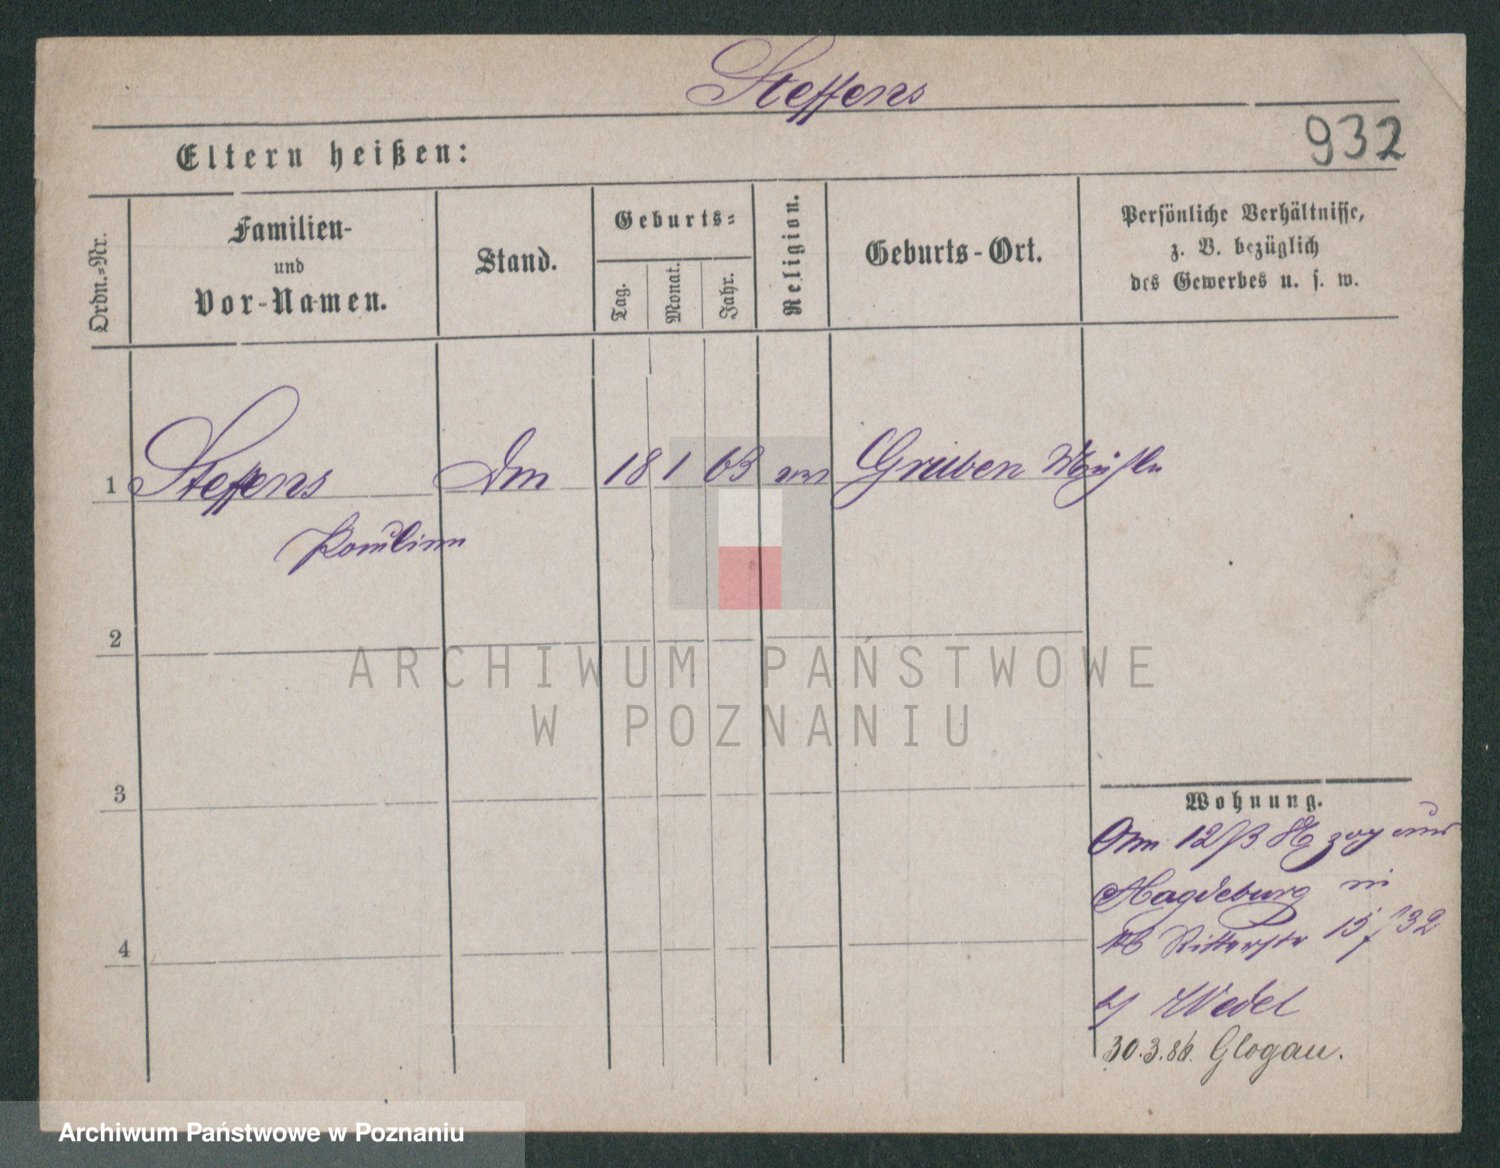 Steffens
932
Eltern heißen:
Ordn.-Nr.
Familien-
und
Vor-Namen.
Stand.
Geburts-
Tag.
Monat.
Jahr.
Religion.
Geburts-Ort.
Persönliche Verhältnisse,
z. B. bezüglich
des Gewerbes u. s. w.
1 Steffens 18 1 63 Gruben
Pauline
2
ARCHIWUM PAŃSTWOWE
W POZNANIU
3
Wohnung.
Am 12/3 zog aus
Magdeburg in
4
Ritterstr 15
b/ Wedel
30.3.86. Glogau.
Archiwum Państwowe w Poznaniu